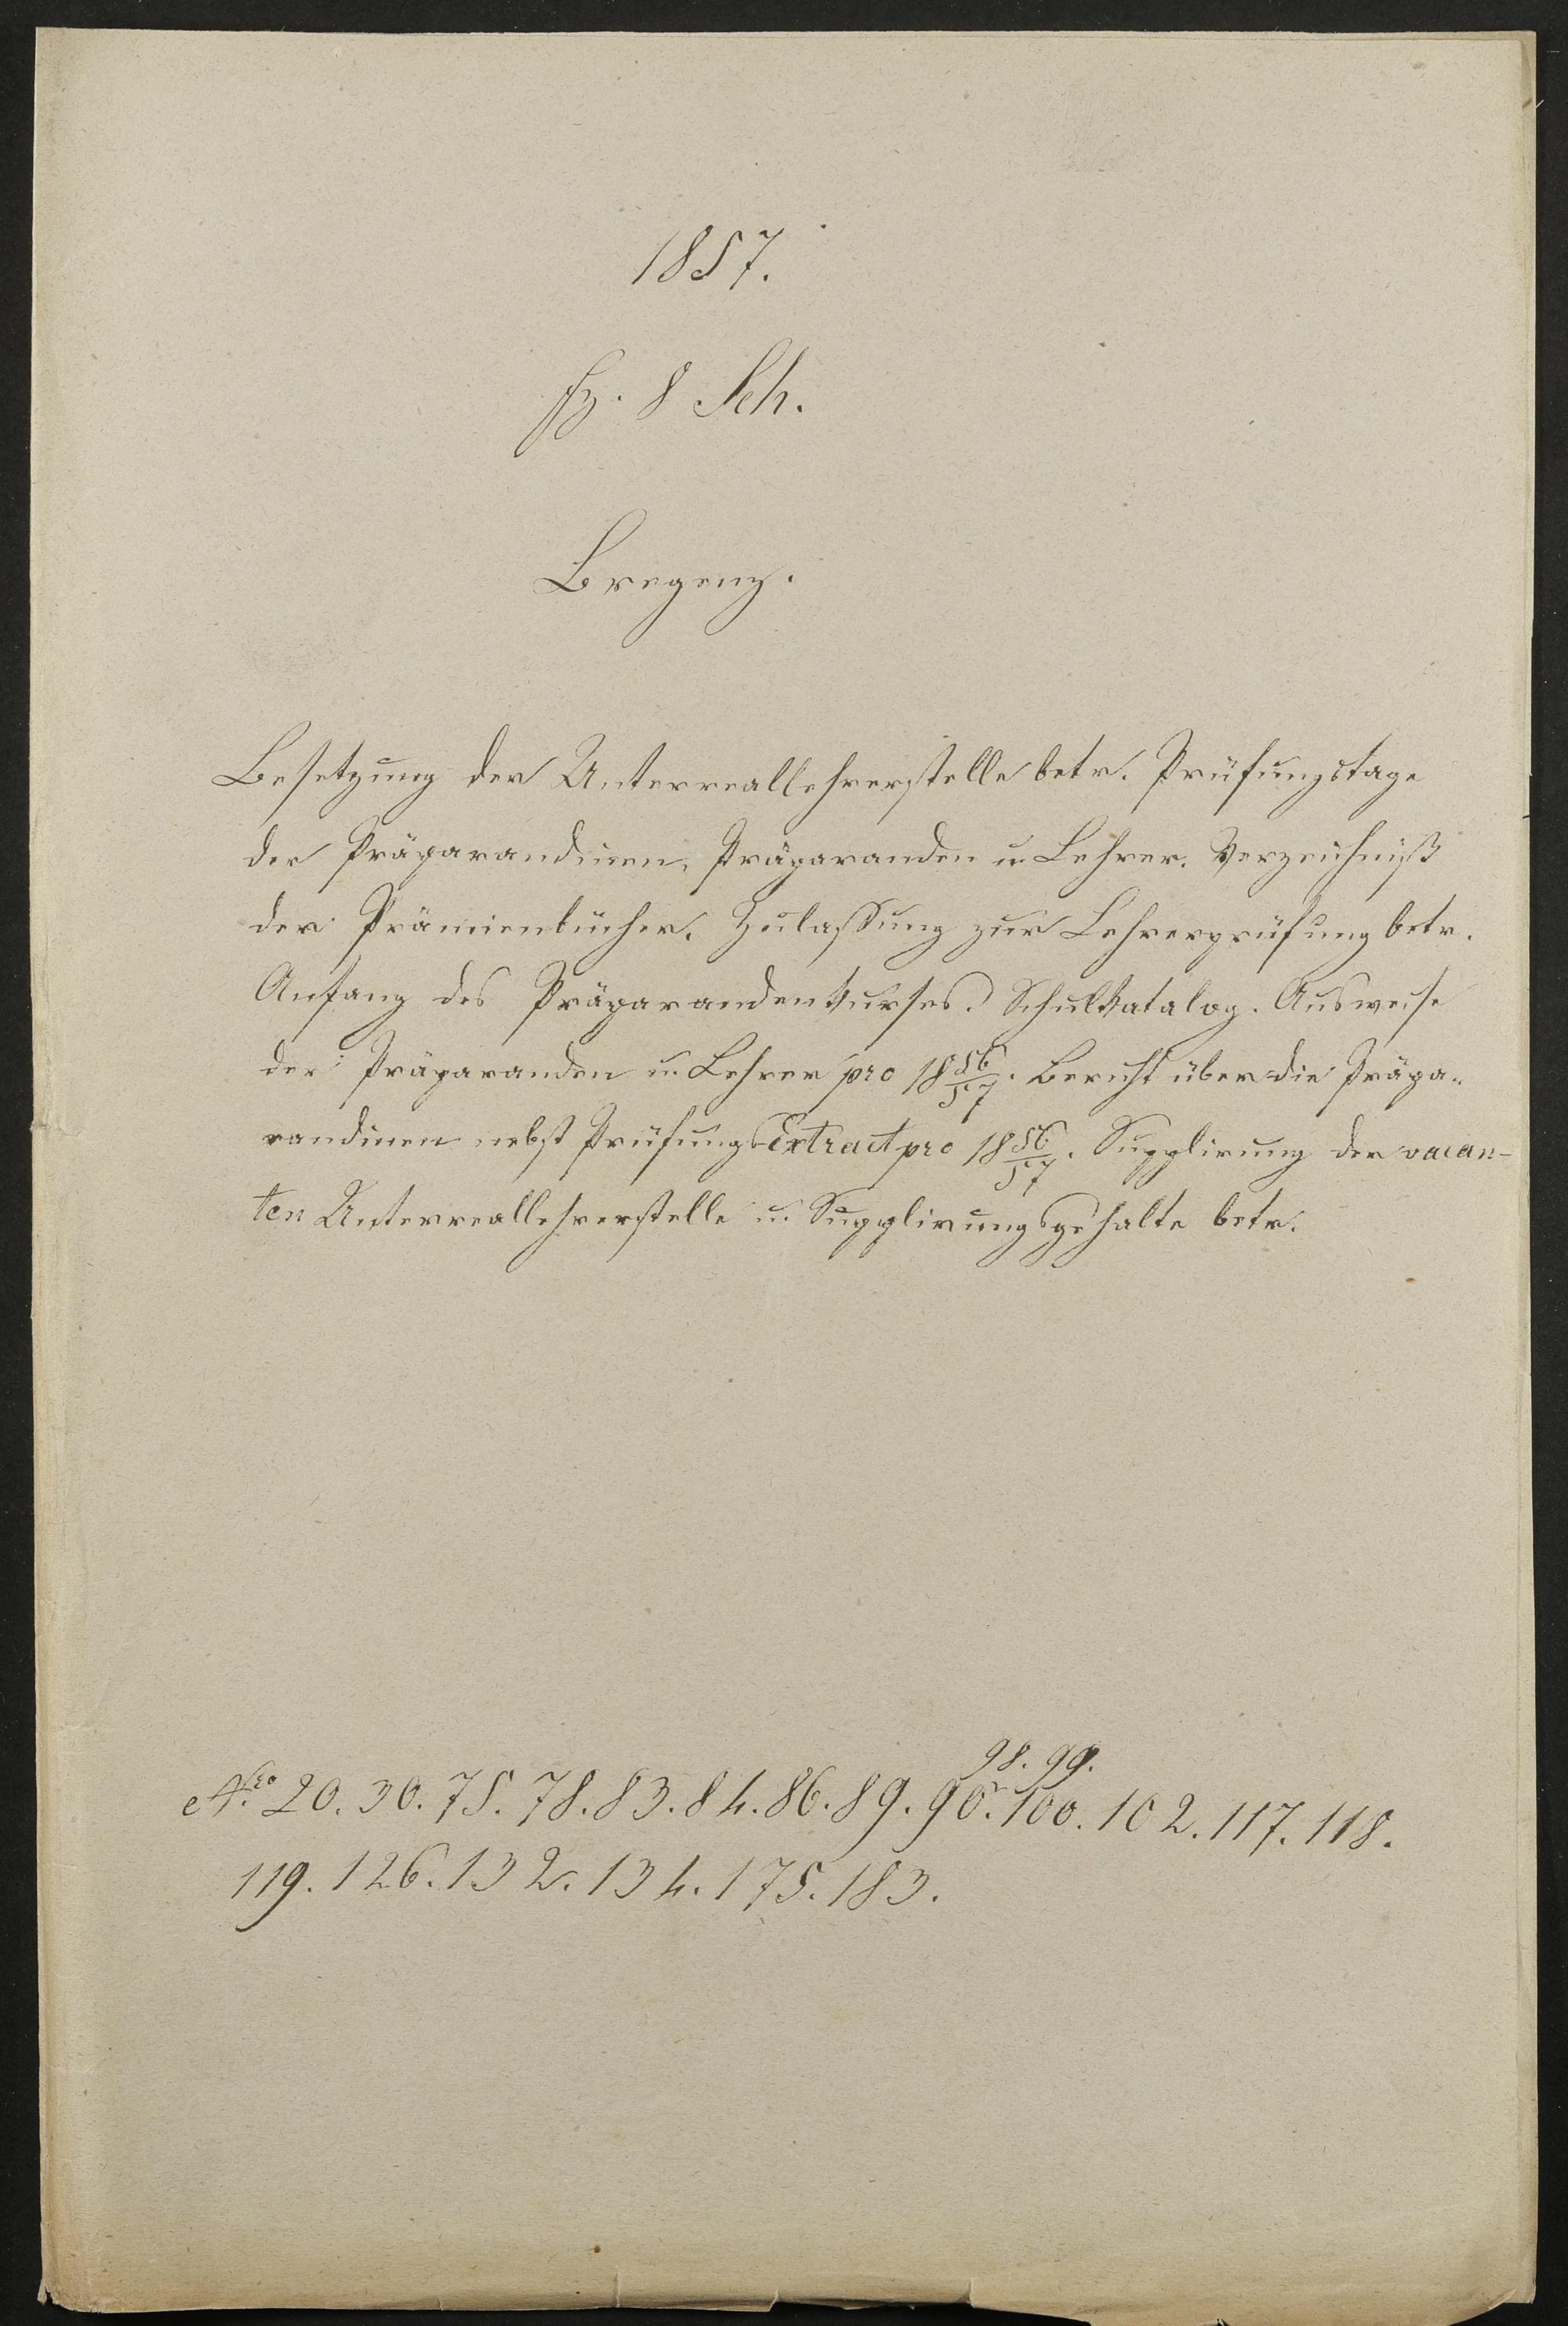 1857.
fz. 8 Sch.
Bregenz.
Besetzung der Unterreallehrerstelle betr. Prüfungstage
der Präparandinen, Präparanden u. Lehrer. Verzeichniß
der Prämienbücher. Zulassung zur Lehrerprüfung betr.
Anfang des Präparandenkurses. Schulkatalog. Ausweise
der Präparanden u. Lehrer pro 1856/57. Bericht über die Präpa-
randinen nebst Prüfungs Extract pro 1856/57. Supplirung der vacan-
ten Unterreallehrerstelle u. Supplirungsgehalte betr.
98. 99.
Nro 20. 30. 75. 78. 83. 84. 86. 89. 90. 100. 102. 117. 118.
119. 126. 132. 134. 175. 183.